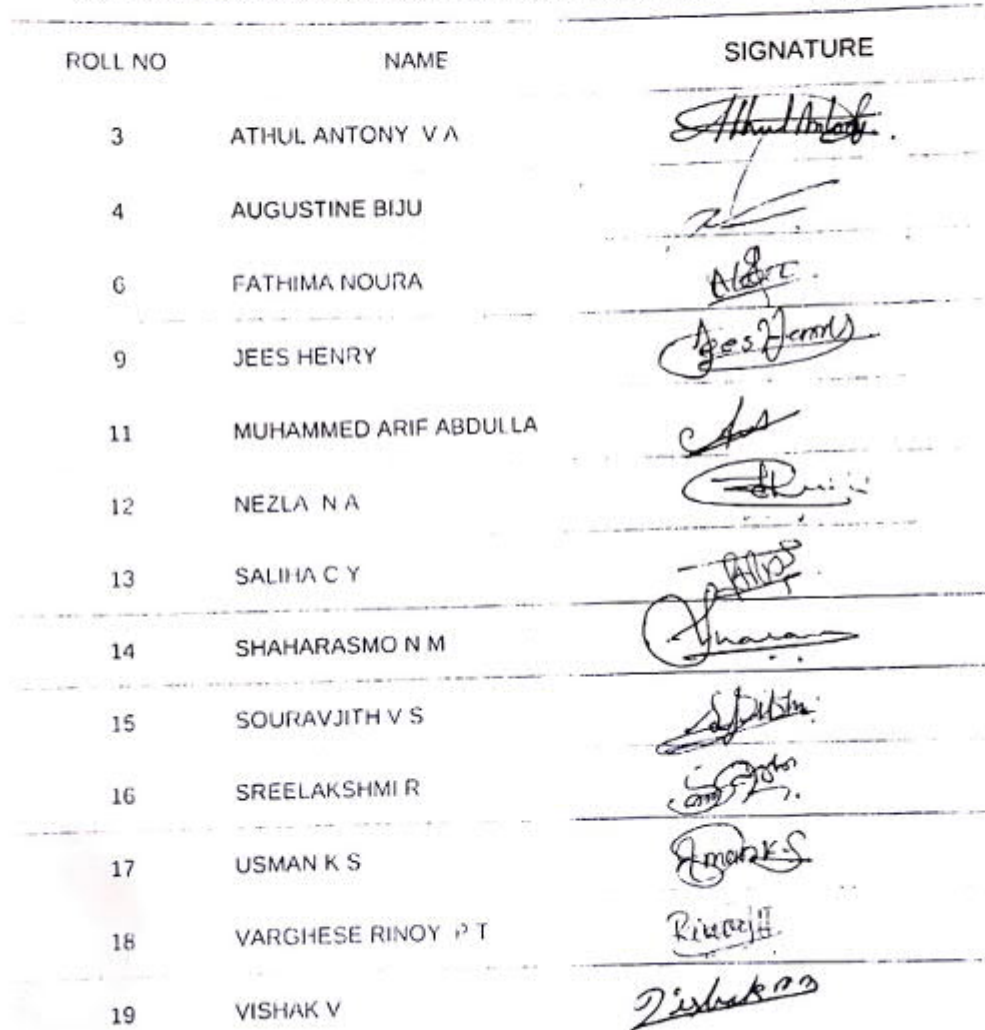 ROLL NO NAME SIGNATURE
3 ATHUL ANTONY V A Athul Antony.
4 AUGUSTINE BIJU
6 FATHIMA NOURA
9 JEES HENRY Jees Henry
11 MUHAMMED ARIF ABDULLA
12 NEZLA N A
13 SALIHA C Y
14 SHAHARASMO N M
15 SOURAVJITH V S
16 SREELAKSHMI R
17 USMAN K S Usman K.S
18 VARGHESE RINOY P T
19 VISHAK V